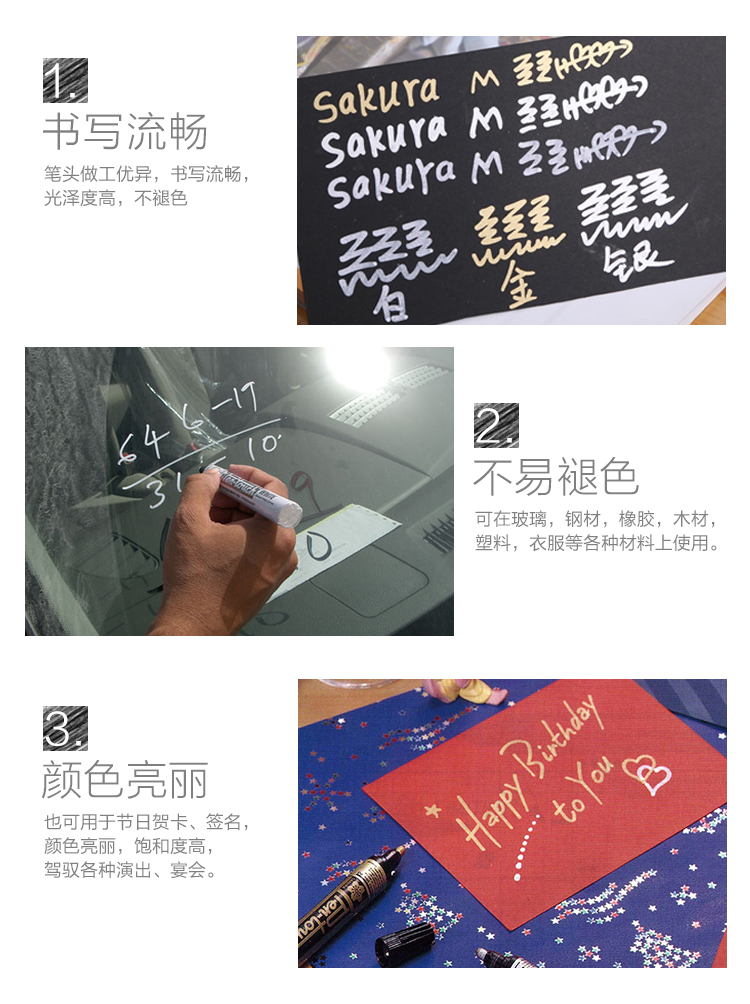 1.
书写流畅
笔头做工优异，书写流畅，
光泽度高，不褪色
Sakura M
Sakura M
Sakura M
白 金 银
2.
不易褪色
可在玻璃，钢材，橡胶，木材，
塑料，衣服等各种材料上使用。
6 4 6-19
3 1 10
9
0
3.
颜色亮丽
也可用于节日贺卡、签名，
颜色亮丽，饱和度高，
驾驭各种演出、宴会。
Happy Birthday
to You